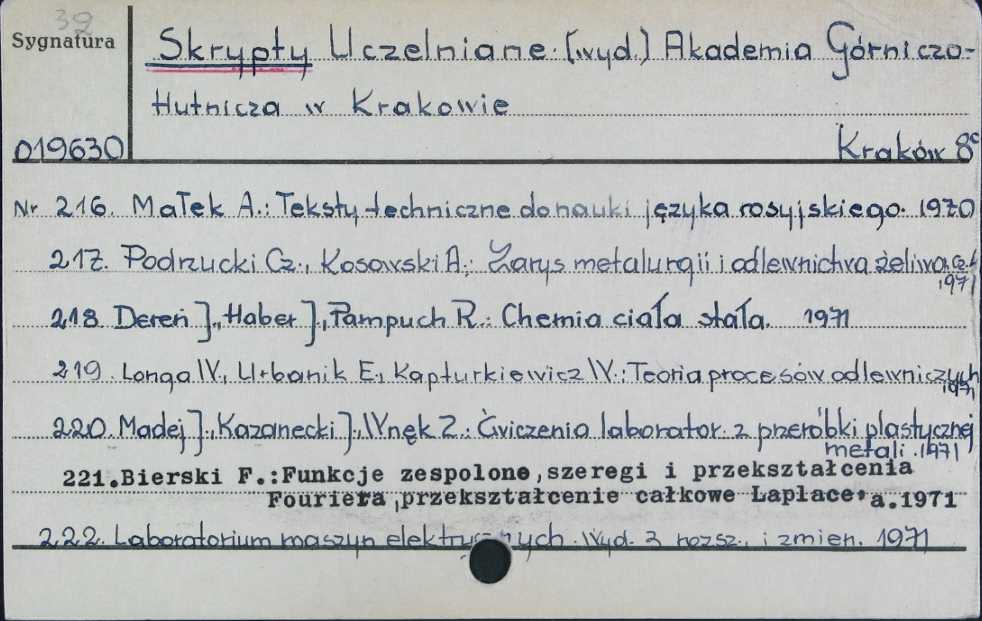 39
Sygnatura
Skrypty Uczelniane. (wyd.) Akademia Górniczo-
Hutnicza w Krakowie
019630
Kraków 8°
Nr 216. Małek A.: Teksty techniczne do nauki języka rosyjskiego. 1970
217. Podrzucki Cz., Kosowski A.: Zarys metalurgii i odlewnictwa żeliwa. Cz.
1971
218. Dereń J., Haber J., Pampuch R.: Chemia ciała stała. 1971
219. Longa W., Urbanik E., Kapturkiewicz W.: Teoria procesów odlewniczych
1971
220. Madej J., Kazanecki J., Wnęk Z.: Ćwiczenia laborator. z przeróbki plastycznej
metali. 1971
221.Bierski F.:Funkcje zespolone,szeregi i przekształcenia
Fouriera,przekształcenie całkowe Laplace'a.1971
222. Laboratorium maszyn elektrycznych. Wyd. 2 rozsz., i zmien. 1971